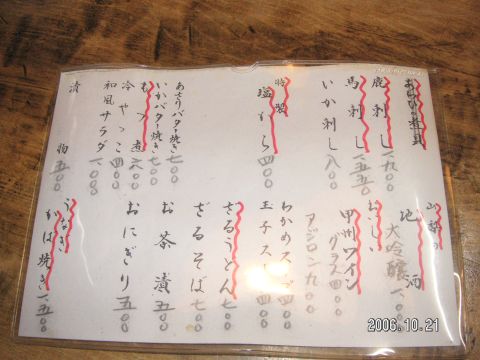 鹿刺し 一、九〇〇
馬刺し 一、五五〇
いか刺し 八〇〇
特製
塩から 四〇〇
あさりバター焼き 七〇〇
いかバター焼き 七〇〇
もつ煮 六〇〇
冷やっこ 四〇〇
和風サラダ 八〇〇
漬物 五〇〇
山梨の
地酒
大吟醸 一、〇〇〇
おいしい
甲州ワイン
グラス 四〇〇
アジロン 九〇〇
わかめスープ 四〇〇
玉子スープ 四〇〇
ざるうどん 七〇〇
ざるそば 七〇〇
お茶漬 五〇〇
おにぎり 五〇〇
うなぎ
かば焼き 一、五〇〇
2006.10.21